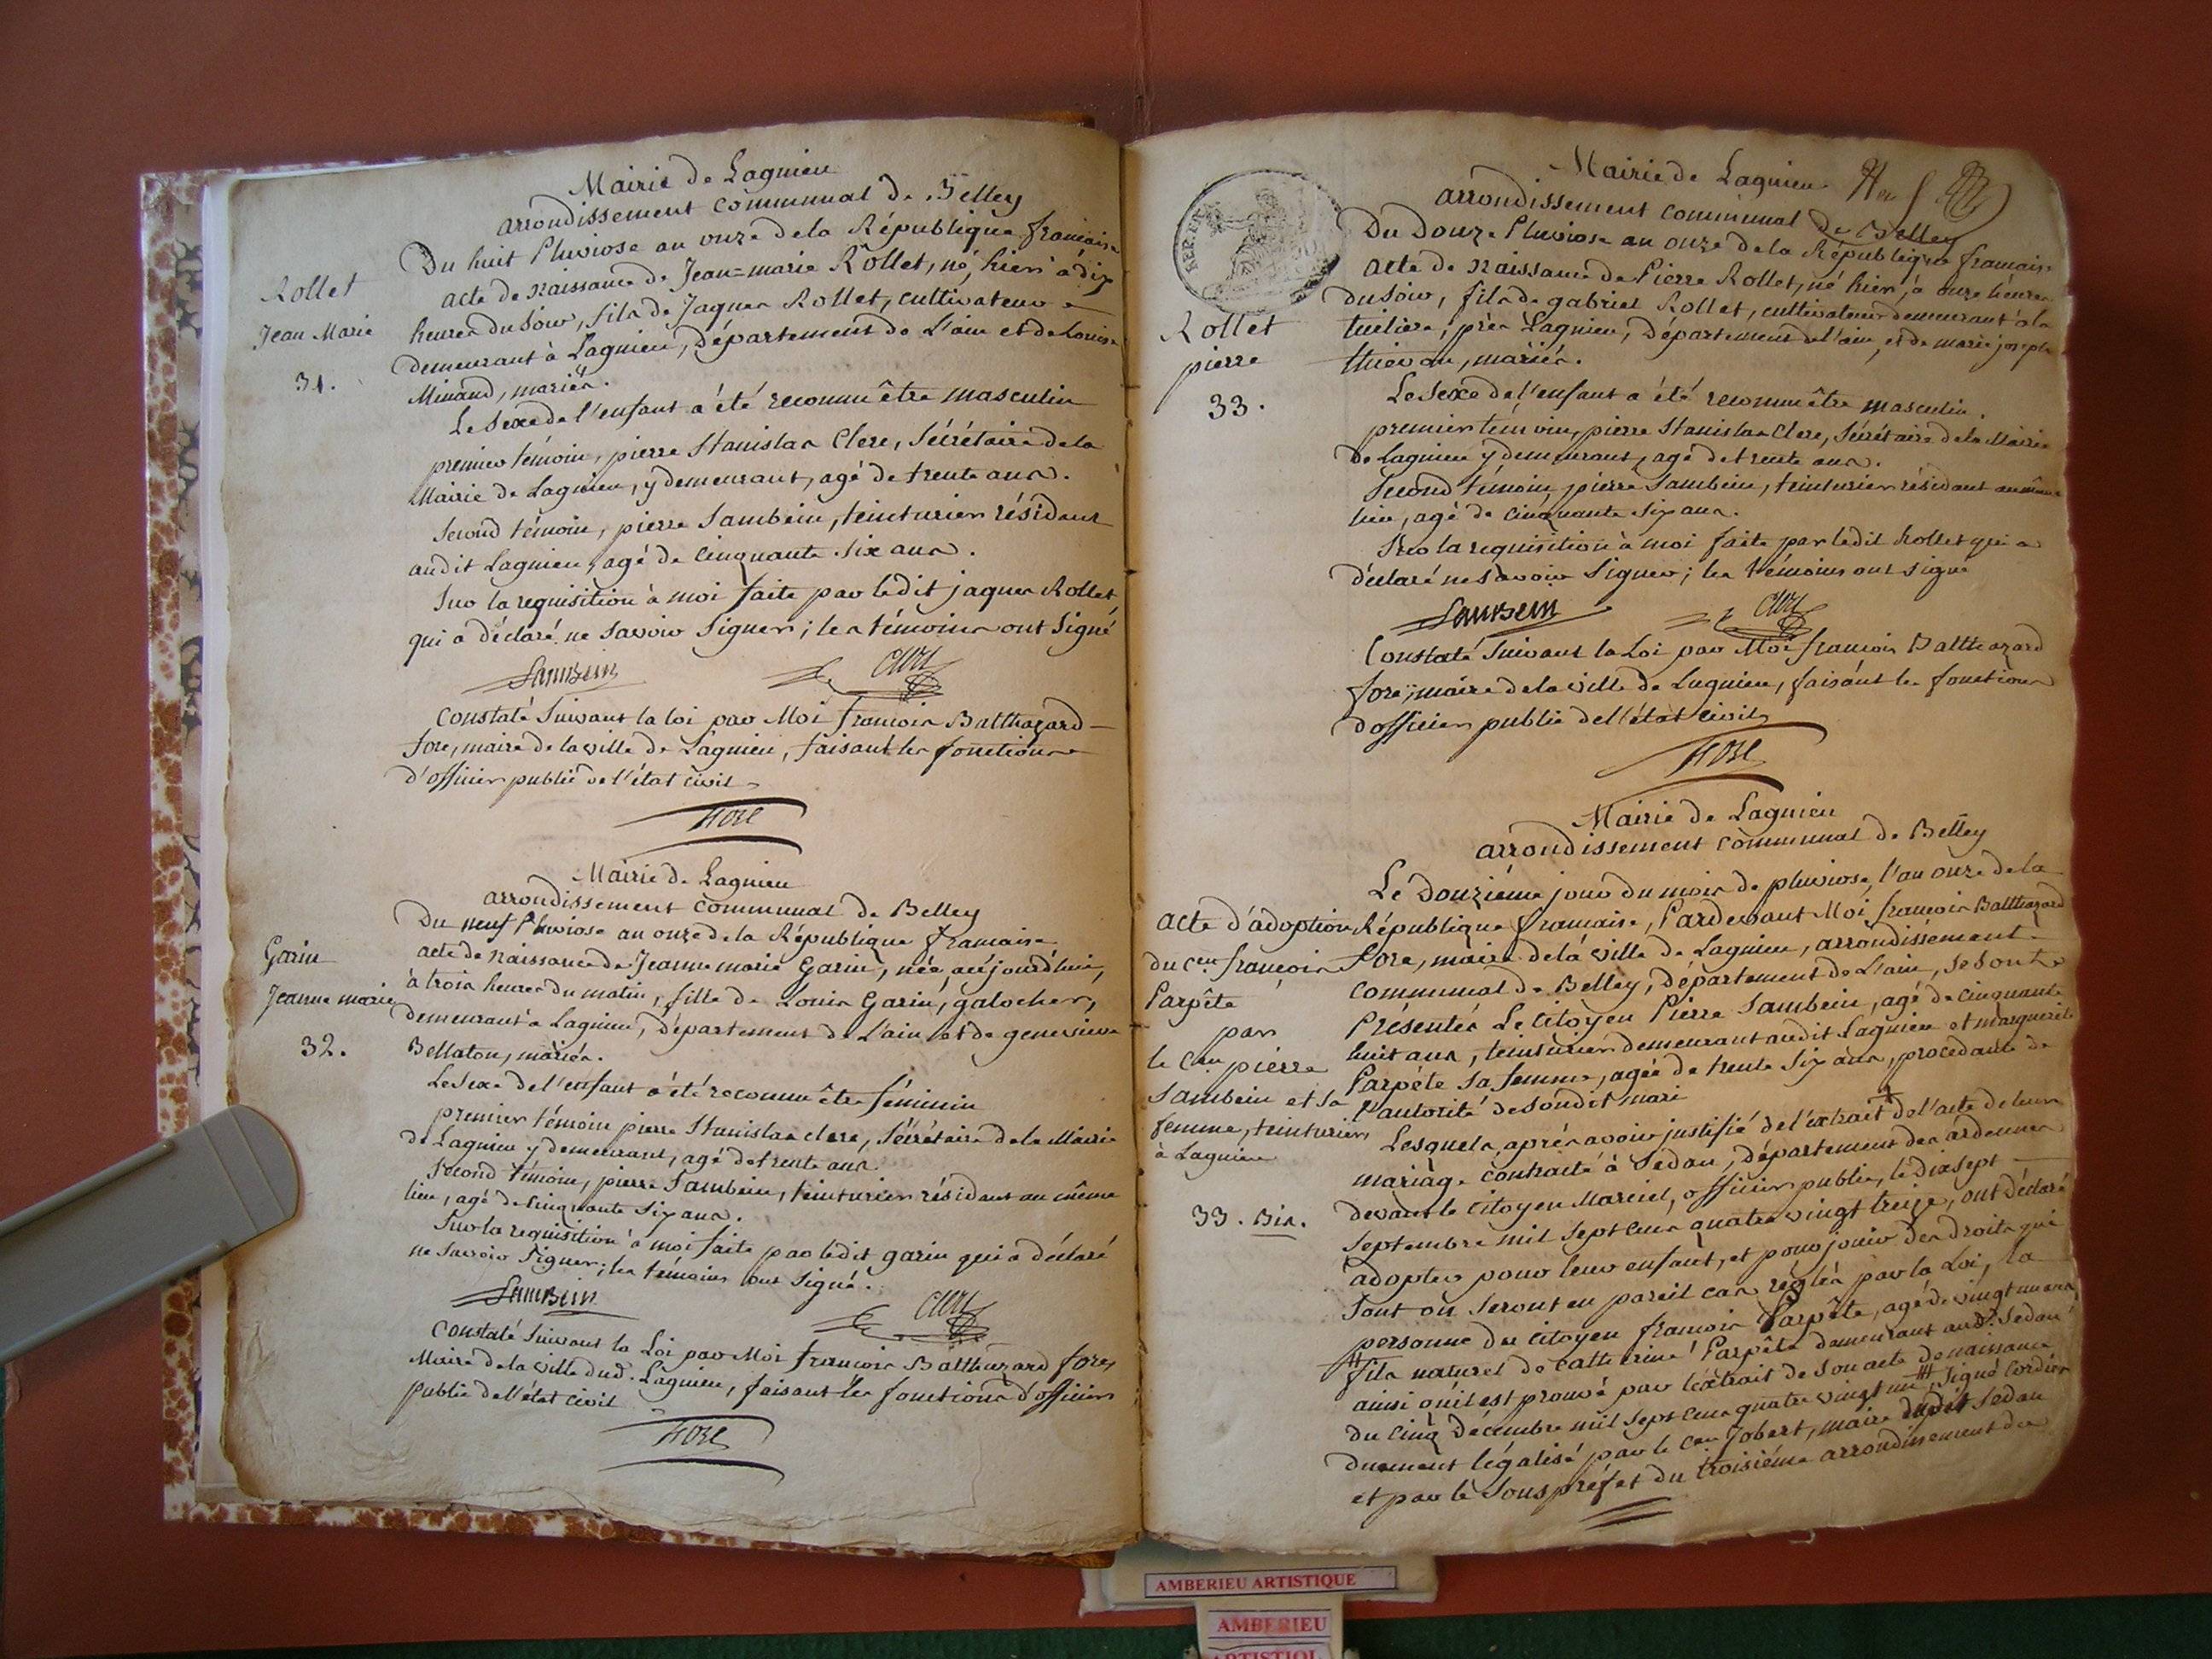 Mairie de Lagnieu
arrondissement communal de Belley
Du huit Pluviose an onze de la République française
Rollet
Jean Marie
31.
acte de naissance de Jean=marie Rollet, né hier à dix
heures du soir, fils de Jaques Rollet, cultivateur
demeurant à Lagnieu, département de L'ain et de Louise
Minand, mariés.
Le sexe de l'enfant a été reconnu être masculin
premier témoin, pierre Stanislas Clerc, Sécrétaire de la
Mairie de Lagnieu, y demeurant, agé de trente ans.
Second témoin, pierre Sambein, teinturier résidant
audit Lagnieu, agé de cinquante six ans.
Sur la requisition à moi faite par ledit jaques Rollet
qui a déclaré ne savoir signer; les témoins ont signé
Sambein Clerc
Constaté suivant la loi par Moi françois Balthazard
fore, maire de la ville de Lagnieu, faisant les fonctions
d'officier public de l'état civil
Fore
Mairie de Lagnieu
arrondissement communal de Belley
Du neuf Pluviose an onze de la République française
Garin
Jeanne marie
32.
acte de naissance de Jeanne marie Garin, née aujourd'hui,
à trois heures du matin, fille de Louis Garin, galocher,
demeurant à Lagnieu, département de L'ain et de genevieve
Bellaton, mariés.
Le sexe de l'enfant a été reconnu être féminin
premier témoin pierre Stanislas clerc, Sécrétaire de la Mairie
de Lagnieu y demeurant, agé de trente ans.
Second témoin, pierre Sambein, teinturier résidant au même
lieu, agé de cinquante six ans.
Sur la requisition à moi faite par ledit garin qui a déclaré
ne savoir signer; les témoins ont signé.
Sambein Clerc
Constaté suivant la Loi par Moi françois Balthazard fore,
Maire de la ville dud. Lagnieu, faisant les fonctions d'officier
public de l'état civil
Fore
Mairie de Lagnieu
arrondissement communal de Belley
REP. FRA.
Du Douze Pluviose an onze de la République française
Rollet
pierre
33.
acte de naissance de Pierre Rollet, né hier, à onze heures
du soir, fils de gabriel Rollet, cultivateur demeurant à la
tuiliere, près Lagnieu, département de l'ain, et de marie joseph
, mariés.
Le sexe de l'enfant a été reconnu être masculin.
premier témoin, pierre Stanislas Clerc, Sécrétaire de la Mairie
de Lagnieu y demeurant, agé de trente ans.
Second témoin, pierre Sambein, teinturier résidant au même
lieu, agé de cinquante six ans.
Sur la requisition à moi faite par ledit Rollet qui a
déclaré ne savoir signer; les témoins ont signé
Sambein Clerc
Constaté suivant la Loi par Moi françois Balthazard
fore, maire de la ville de Lagnieu, faisant les fonctions
d'officier public de l'état civil
Fore
Mairie de Lagnieu
arrondissement communal de Belley
acte d'adoption
du cen. françois
Parpête
par
le cen. pierre
Sambein et sa
femme, teinturier
à Lagnieu
33. Bis.
Le Douzième jour du mois de pluviose, l'an onze de la
République française, Pardevant Moi françois Balthazard
Fore, maire de la ville de Lagnieu, arrondissement
communal de Belley, département de L'ain, se sont
Présentés Le Citoyen Pierre Sambein, agé de cinquante
huit ans, teinturier demeurant audit Lagnieu et marguerite
Parpête sa femme, agée de trente six ans, procédante de
l'autorité de sondit mari
Lesquels, après avoir justifié de l'extrait de l'acte de leur
mariage contracté à Sedan, département des ardennes
devant le Citoyen Marciel, officier public, le dix sept
Septembre mil sept cent quatre vingt treize, ont déclaré
adopter pour leur enfant, et pour jouir des droits qui
sont ou seront en pareil cas réglés par la Loi, la
personne du Citoyen françois Parpête, agé de vingt un ans,
fils naturel de Catherine Parpête demeurant aud. Sedan
ainsi qu'il est prouvé par l'extrait de son acte de naissance
du cinq Décembre mil sept cent quatre vingt un, signé Cordier
duement légalisé par le cen. Jobert, maire dudit Sedan
et par le Souspréfet du troisième arrondissement des
AMBERIEU ARTISTIQUE
AMBERIEU
ARTISTIQUE